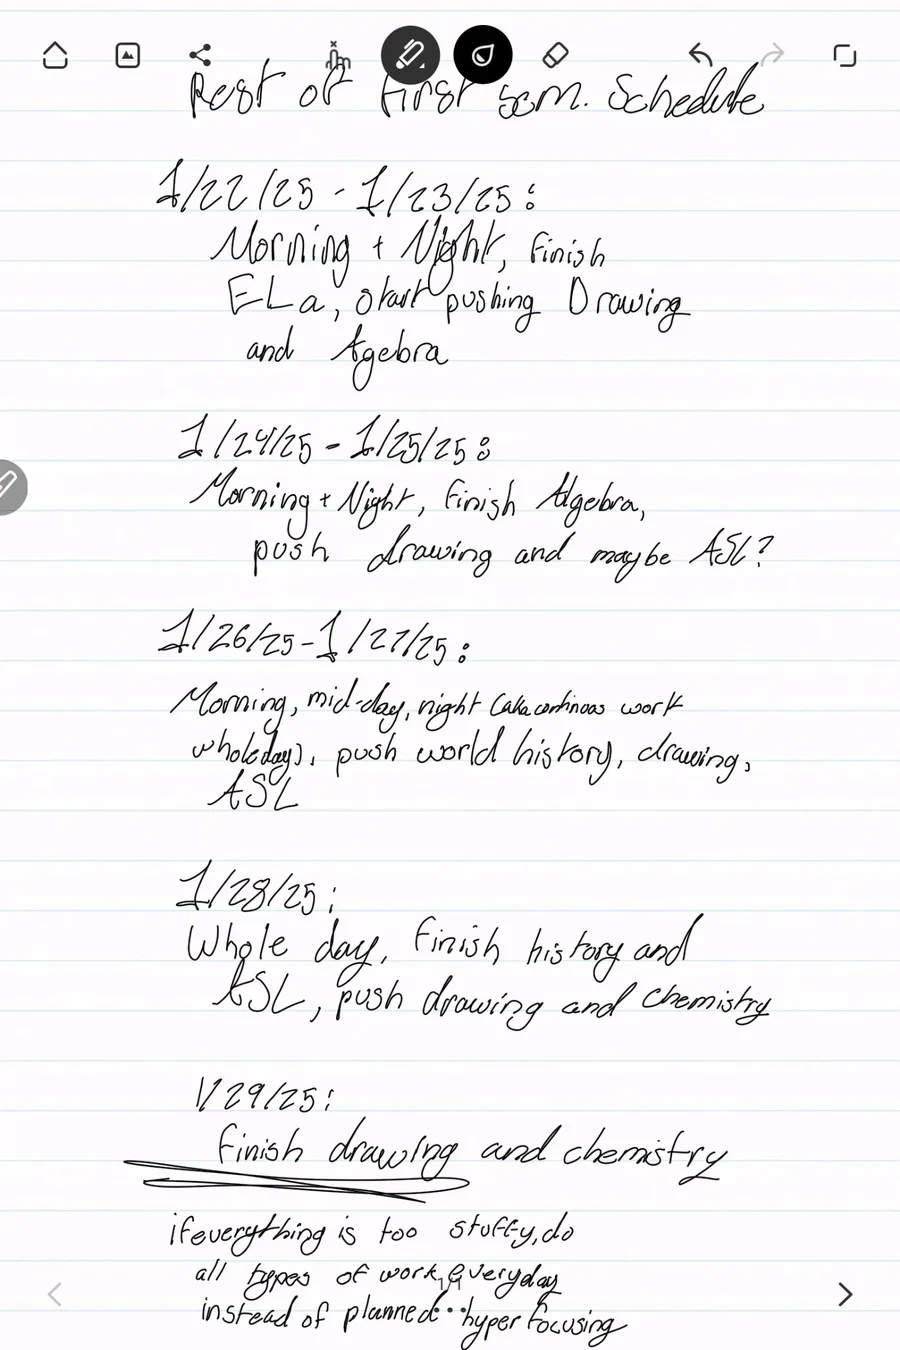 Rest of first sem. Schedule
1/22/25 - 1/23/25:
Morning + Night, finish
ELa, start pushing Drawing
and Agebra
1/24/25 - 1/25/25:
Morning + Night, finish Algebra,
push drawing and maybe ASL?
1/26/25 - 1/27/25:
Morning, mid-day, night (aka continous work
whole day), push world history, drawing,
ASL
1/28/25:
Whole day, finish history and
ASL, push drawing and chemistry
1/29/25:
finish drawing and chemistry
if everything is too stuffy, do
all types of work, everyday
instead of planned... hyper focusing